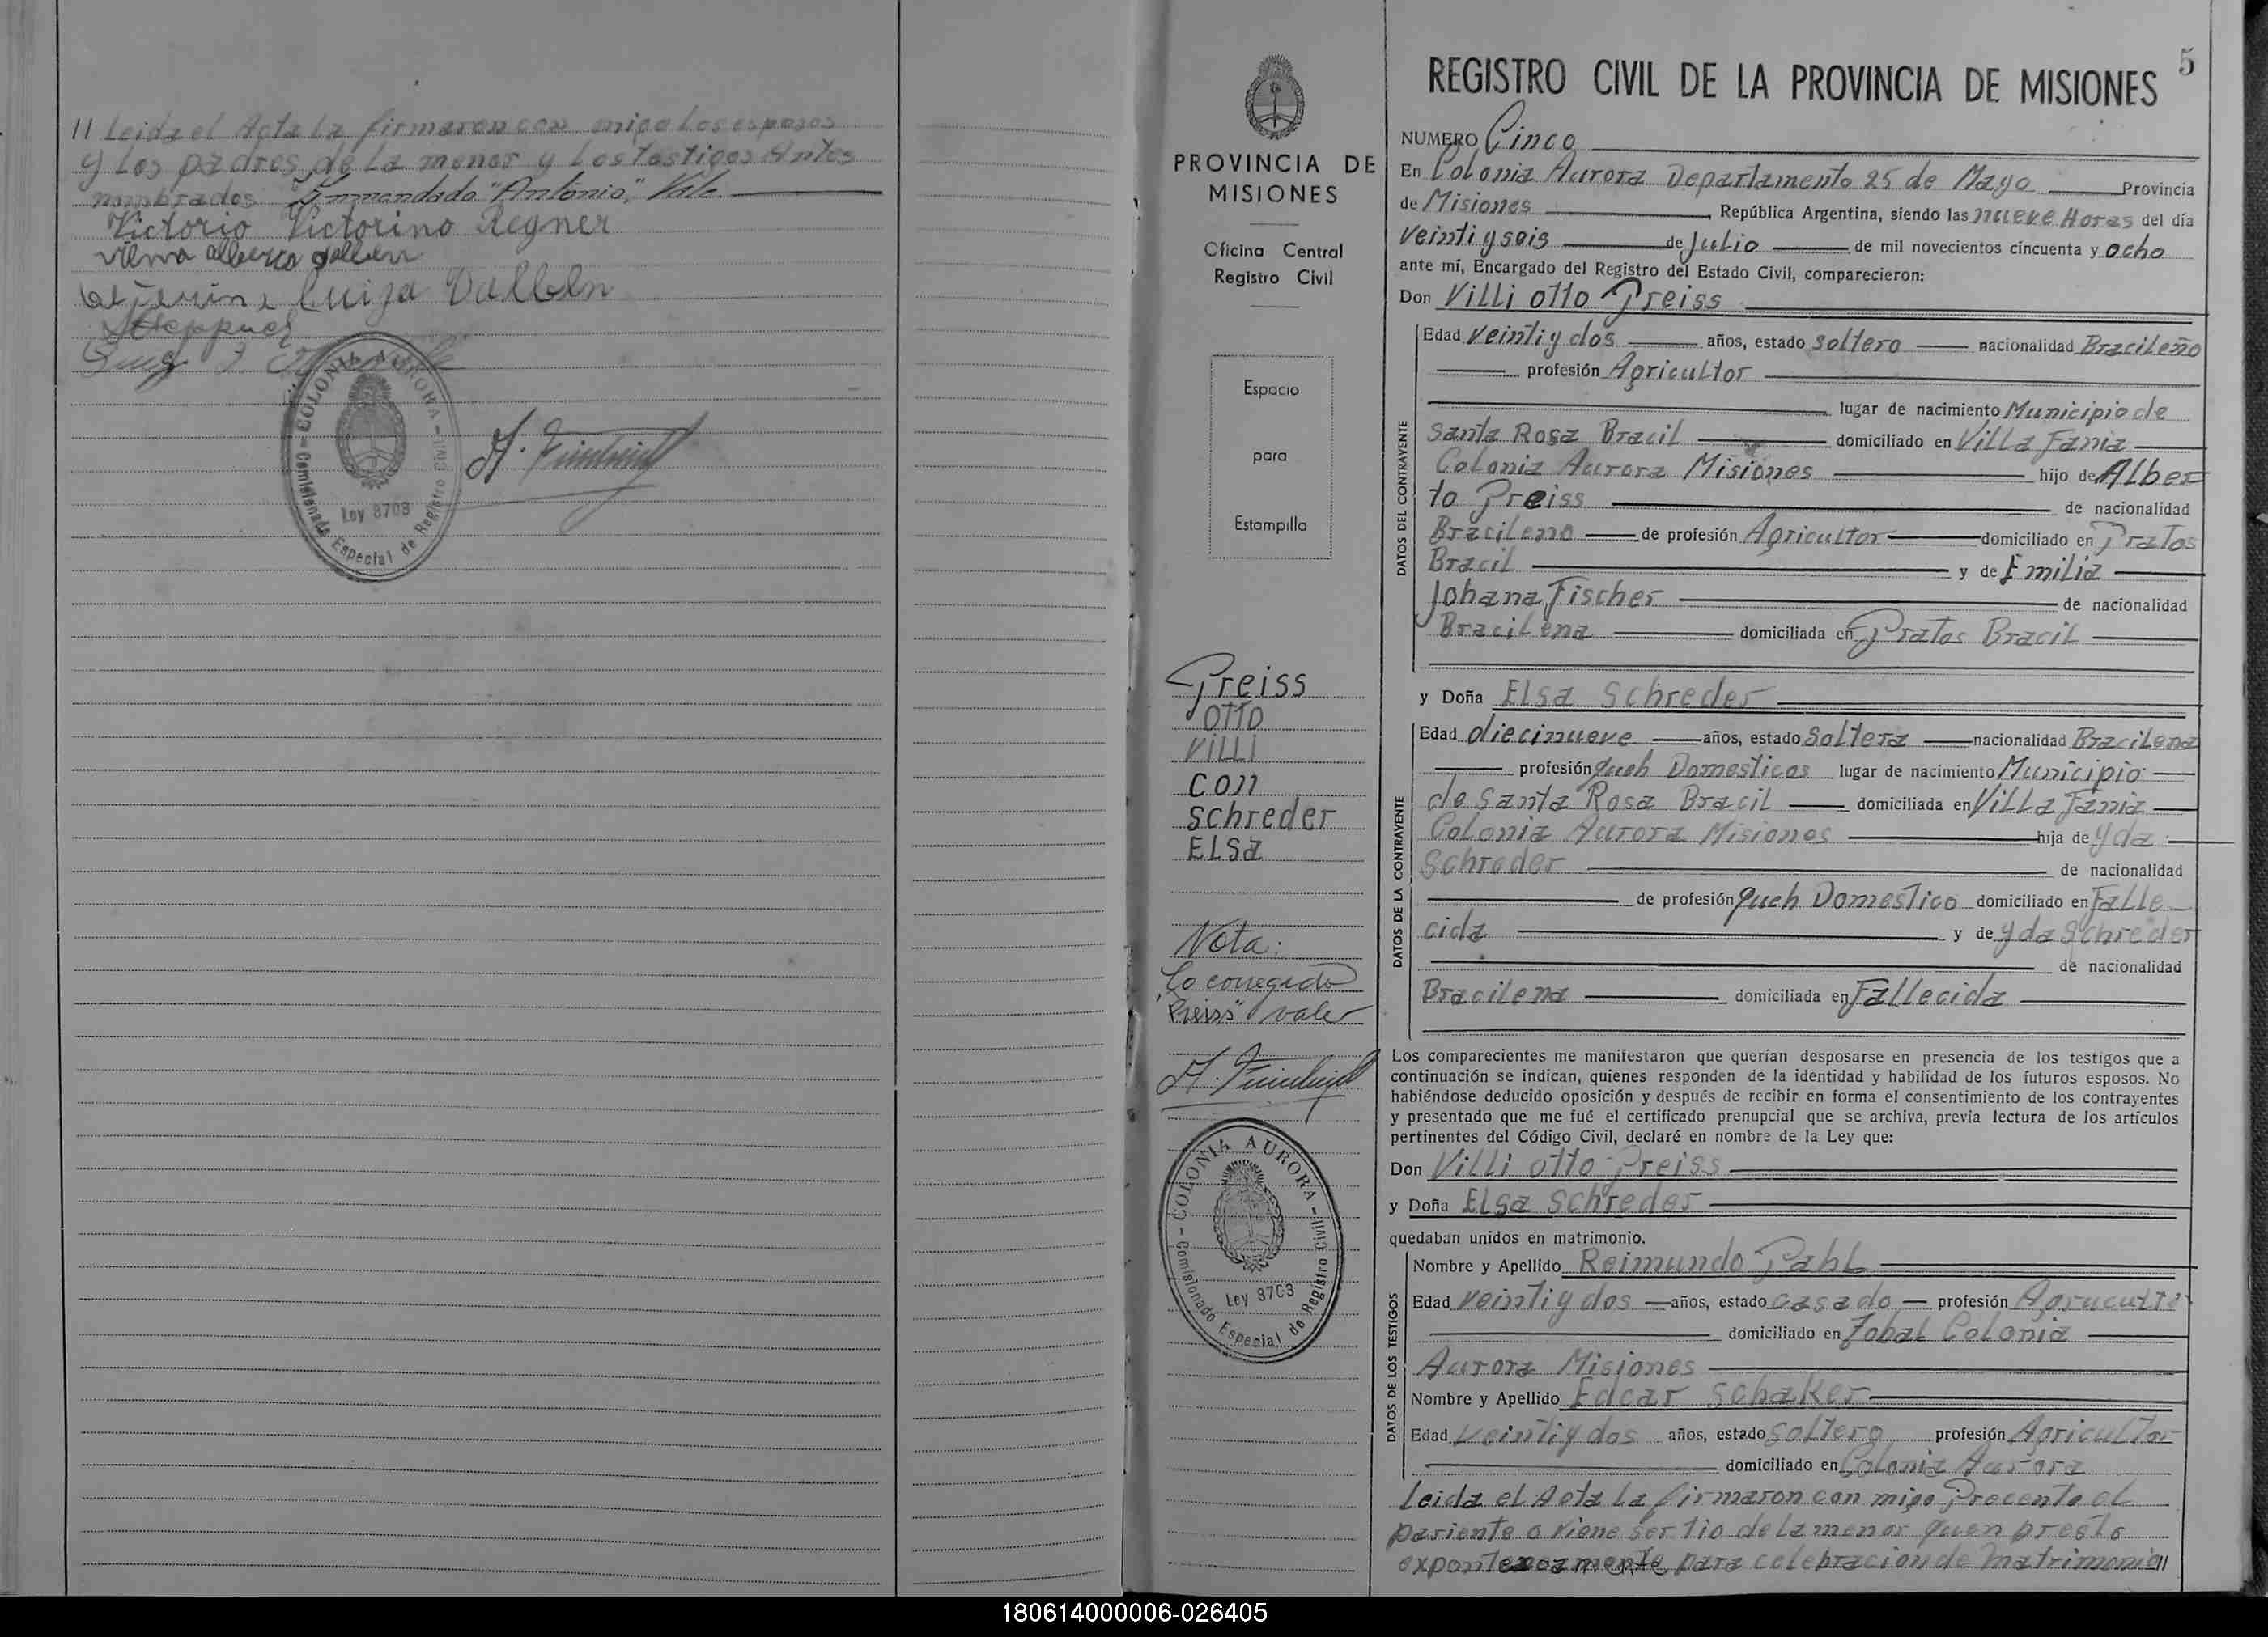 11 Leida el Acta la firmaron con migo Los esposos
y Los padres de La menor y Los Testigos Antes
nombrados Enmendado "Antonio", Vale.
Victorio Victorino Regner
vilma alberca
Luiza Dallben
COLONIA AURORA
Comisionado Especial de Registro Civil
Ley 8703
5
REGISTRO CIVIL DE LA PROVINCIA DE MISIONES
PROVINCIA DE
MISIONES
Oficina Central
Registro Civil
Espacio
para
Estampilla
Preiss
OTTO
VILLI
con
schreder
ELSa
Nota:
Lo corregido
"Preiss" vale
COLONIA AURORA
Comisionado Especial de Registro Civil
Ley 8703
NUMERO Cinco
En Colonia Aurora Departamento 25 de Mayo Provincia
de Misiones República Argentina, siendo las nueve Horas del día
veinti y seis de Julio de mil novecientos cincuenta y ocho
ante mí, Encargado del Registro del Estado Civil, comparecieron:
Don Villi otto Preiss
DATOS DEL CONTRAYENTE
Edad veinti y dos años, estado soltero nacionalidad Bracileño
profesión Agricultor
lugar de nacimiento Municipio de
Santa Rosa Bracil domiciliado en Villa Fania
Colonia Aurora Misiones hijo de Alber
to Preiss de nacionalidad
Bracileno de profesión Agricultor domiciliado en Pratos
Bracil y de Emilia
Johana Fischer de nacionalidad
Bracilena domiciliada en Pratos Bracil
y Doña Elsa Schreder
DATOS DE LA CONTRAYENTE
Edad diecinueve años, estado Soltera nacionalidad Bracilena
profesión Queh Domesticos lugar de nacimiento Municipio
de Santa Rosa Bracil domiciliada en Villa Fania
Colonia Aurora Misiones hija de Yda
Schreder de nacionalidad
de profesión Queh Domestico domiciliado en Falle
cida y de Yda Schreder
de nacionalidad
Bracilena domiciliada en Fallecida
Los comparecientes me manifestaron que querían desposarse en presencia de los testigos que a
continuación se indican, quienes responden de la identidad y habilidad de los futuros esposos. No
habiéndose deducido oposición y después de recibir en forma el consentimiento de los contrayentes
y presentado que me fué el certificado prenupcial que se archiva, previa lectura de los artículos
pertinentes del Código Civil, declaré en nombre de la Ley que:
Don Villi otto Preiss
y Doña Elsa Schreder
quedaban unidos en matrimonio.
DATOS DE LOS TESTIGOS
Nombre y Apellido Reimundo Pahl
Edad veinti y dos años, estado casado profesión Agrucultor
domiciliado en Zobal Colonia
Aurora Misiones
Nombre y Apellido Edcar Schaker
Edad veinti y dos años, estado soltero profesión Agricultor
domiciliado en Colonia Aurora
Leida el Acta La firmaron con migo Precente el
pariente o viene ser tio de la menor quen presto
expontenoamente para celebracion de matrimonio 11
180614000006-026405